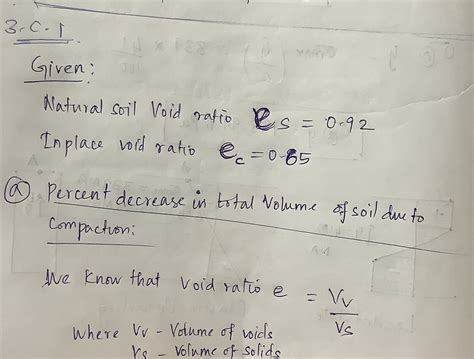 3.C.1
Given:
Natural soil Void ratio es = 0.92
Inplace void ratio ec = 0.65
(a) Percent decrease in total volume of soil due to
Compaction:
We know that void ratio e = Vv/Vs
Where Vv - Volume of voids
Vs - Volume of solids